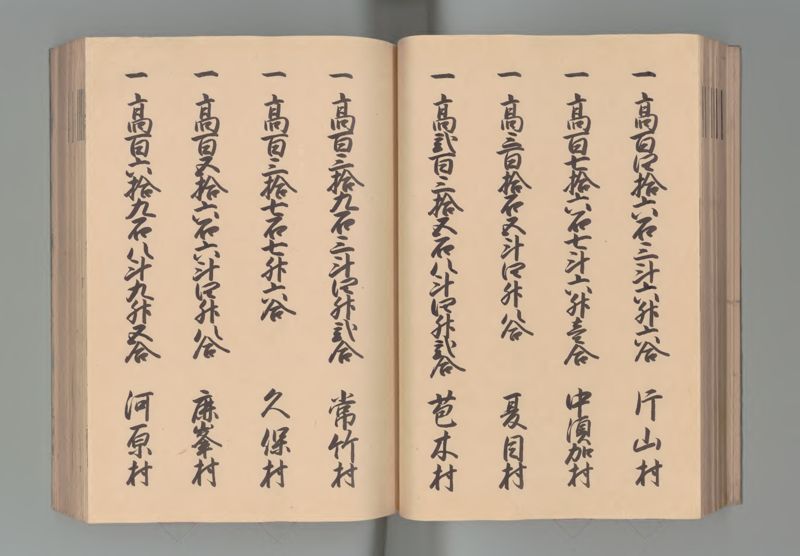 一高百四拾六石三斗六升六合 片山村
一高百七拾六石七斗六升壱合 中須加村
一高三百拾石五斗四升八合 夏目村
一高弐百三拾五石八斗四升弐合 芭木村
一高百三拾九石三斗四升弐合 常竹村
一高百三拾七石七升六合 久保村
一高百五拾六石六斗四升八合 麻峯村
一高百六拾九石八斗九升五合 河原村